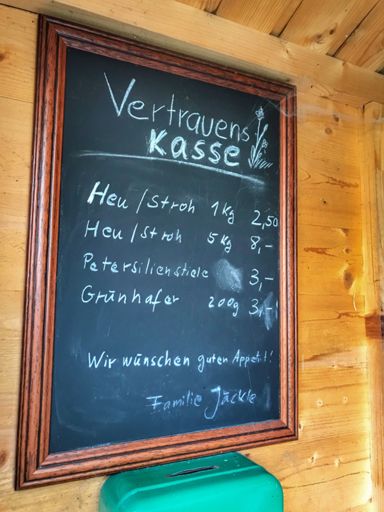 Vertrauens
Kasse
Heu/Stroh 1kg 2,50
Heu/Stroh 5kg 8,-
Petersilienstiele 3,-
Grünhafer 200g 3,-
Wir wünschen guten Appetit!
Familie Jäckle